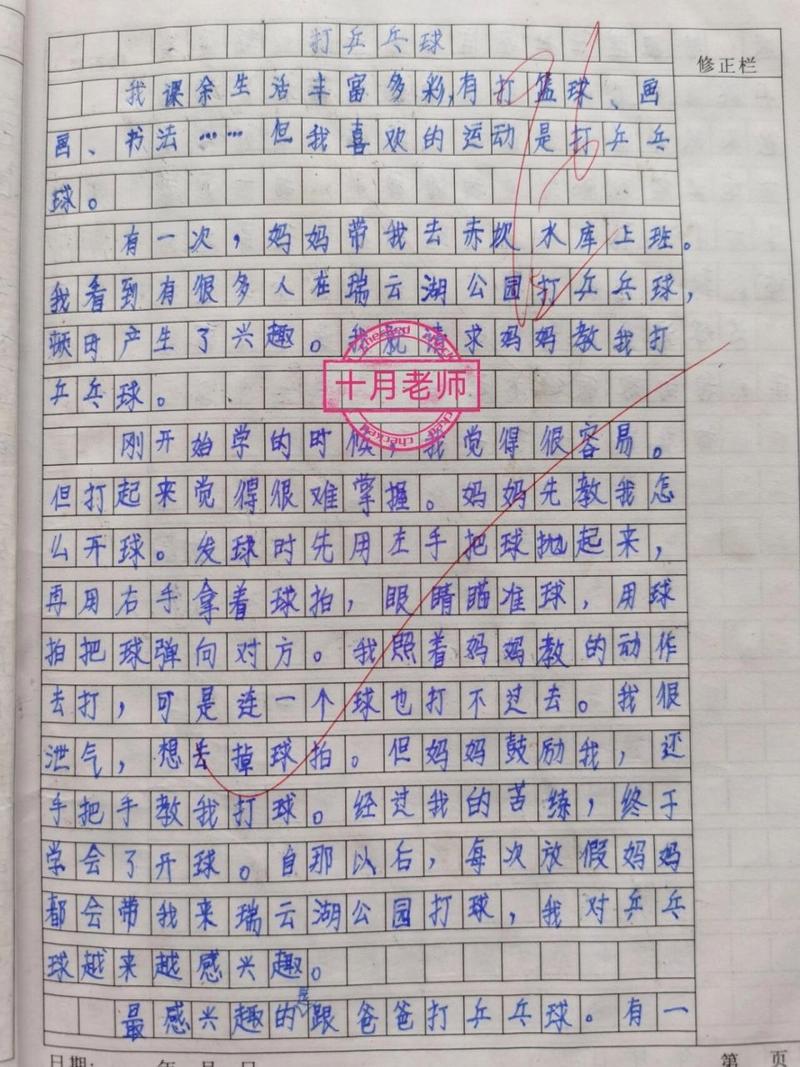 打乒乓球
修正栏
我课余生活丰富多彩,有打篮球、画
画、书法……但我喜欢的运动是打乒乓
球。
有一次，妈妈带我去赤坎水库上班。
我看到有很多人在瑞云湖公园打乒乓球，
顿时产生了兴趣。我就请求妈妈教我打
乒乓球。
十月老师
刚开始学的时候，我觉得很容易。
但打起来觉得很难掌握。妈妈先教我怎
么开球。发球时先用左手把球抛起来，
再用右手拿着球拍，眼睛瞄准球，用球
拍把球弹向对方。我照着妈妈教的动作
去打，可是连一个球也打不过去。我很
泄气，想丢掉球拍。但妈妈鼓励我，还
手把手教我打球。经过我的苦练，终于
学会了开球。自那以后，每次放假妈妈
都会带我来瑞云湖公园打球，我对乒乓
球越来越感兴趣。
最感兴趣的是跟爸爸打乒乓球。有一
日期： 年 月 日
第 页